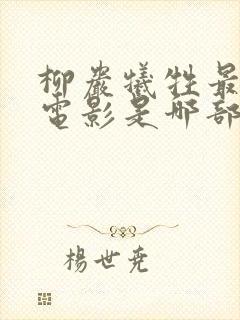 柳巖犧牲最
電影是哪部
楊世堯